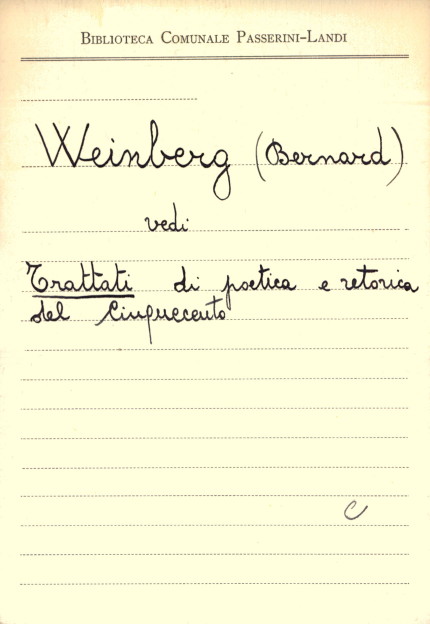 BIBLIOTECA COMUNALE PASSERINI-LANDI
Weinberg (Bernard)
vedi
Trattati di poetica e retorica
del Cinquecento
C